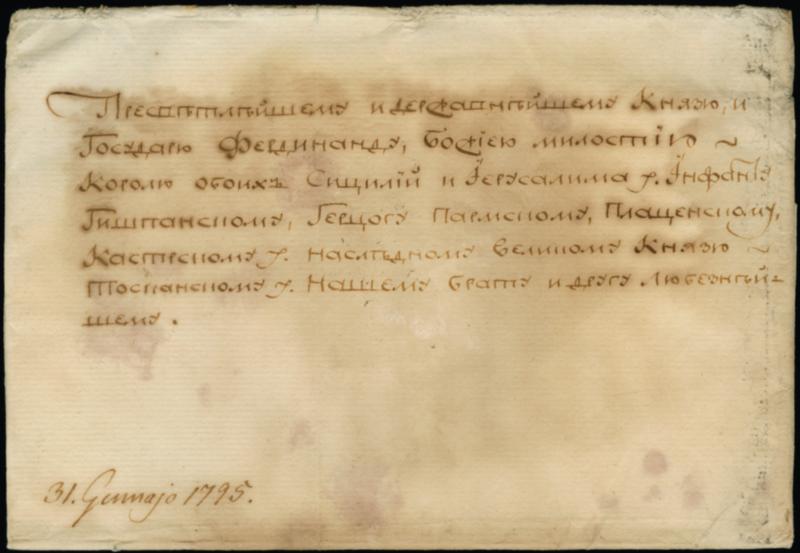 Пресвѣтлѣйшему и державнѣйшему Князю, и
Государю Фердинанду, Божіею милостію ~
Королю обоихъ Сицилій и Іерусалима ꝛ. Інфанту
Гишпанскому, Герцогу Пармскому, Плаценскому,
Кастрскому ꝛ. Наслѣдному Великому Князю ~
Тосканскому ꝛ. Нашему брату и другу любезнѣй-
шему.
31. Gennajo 1795.